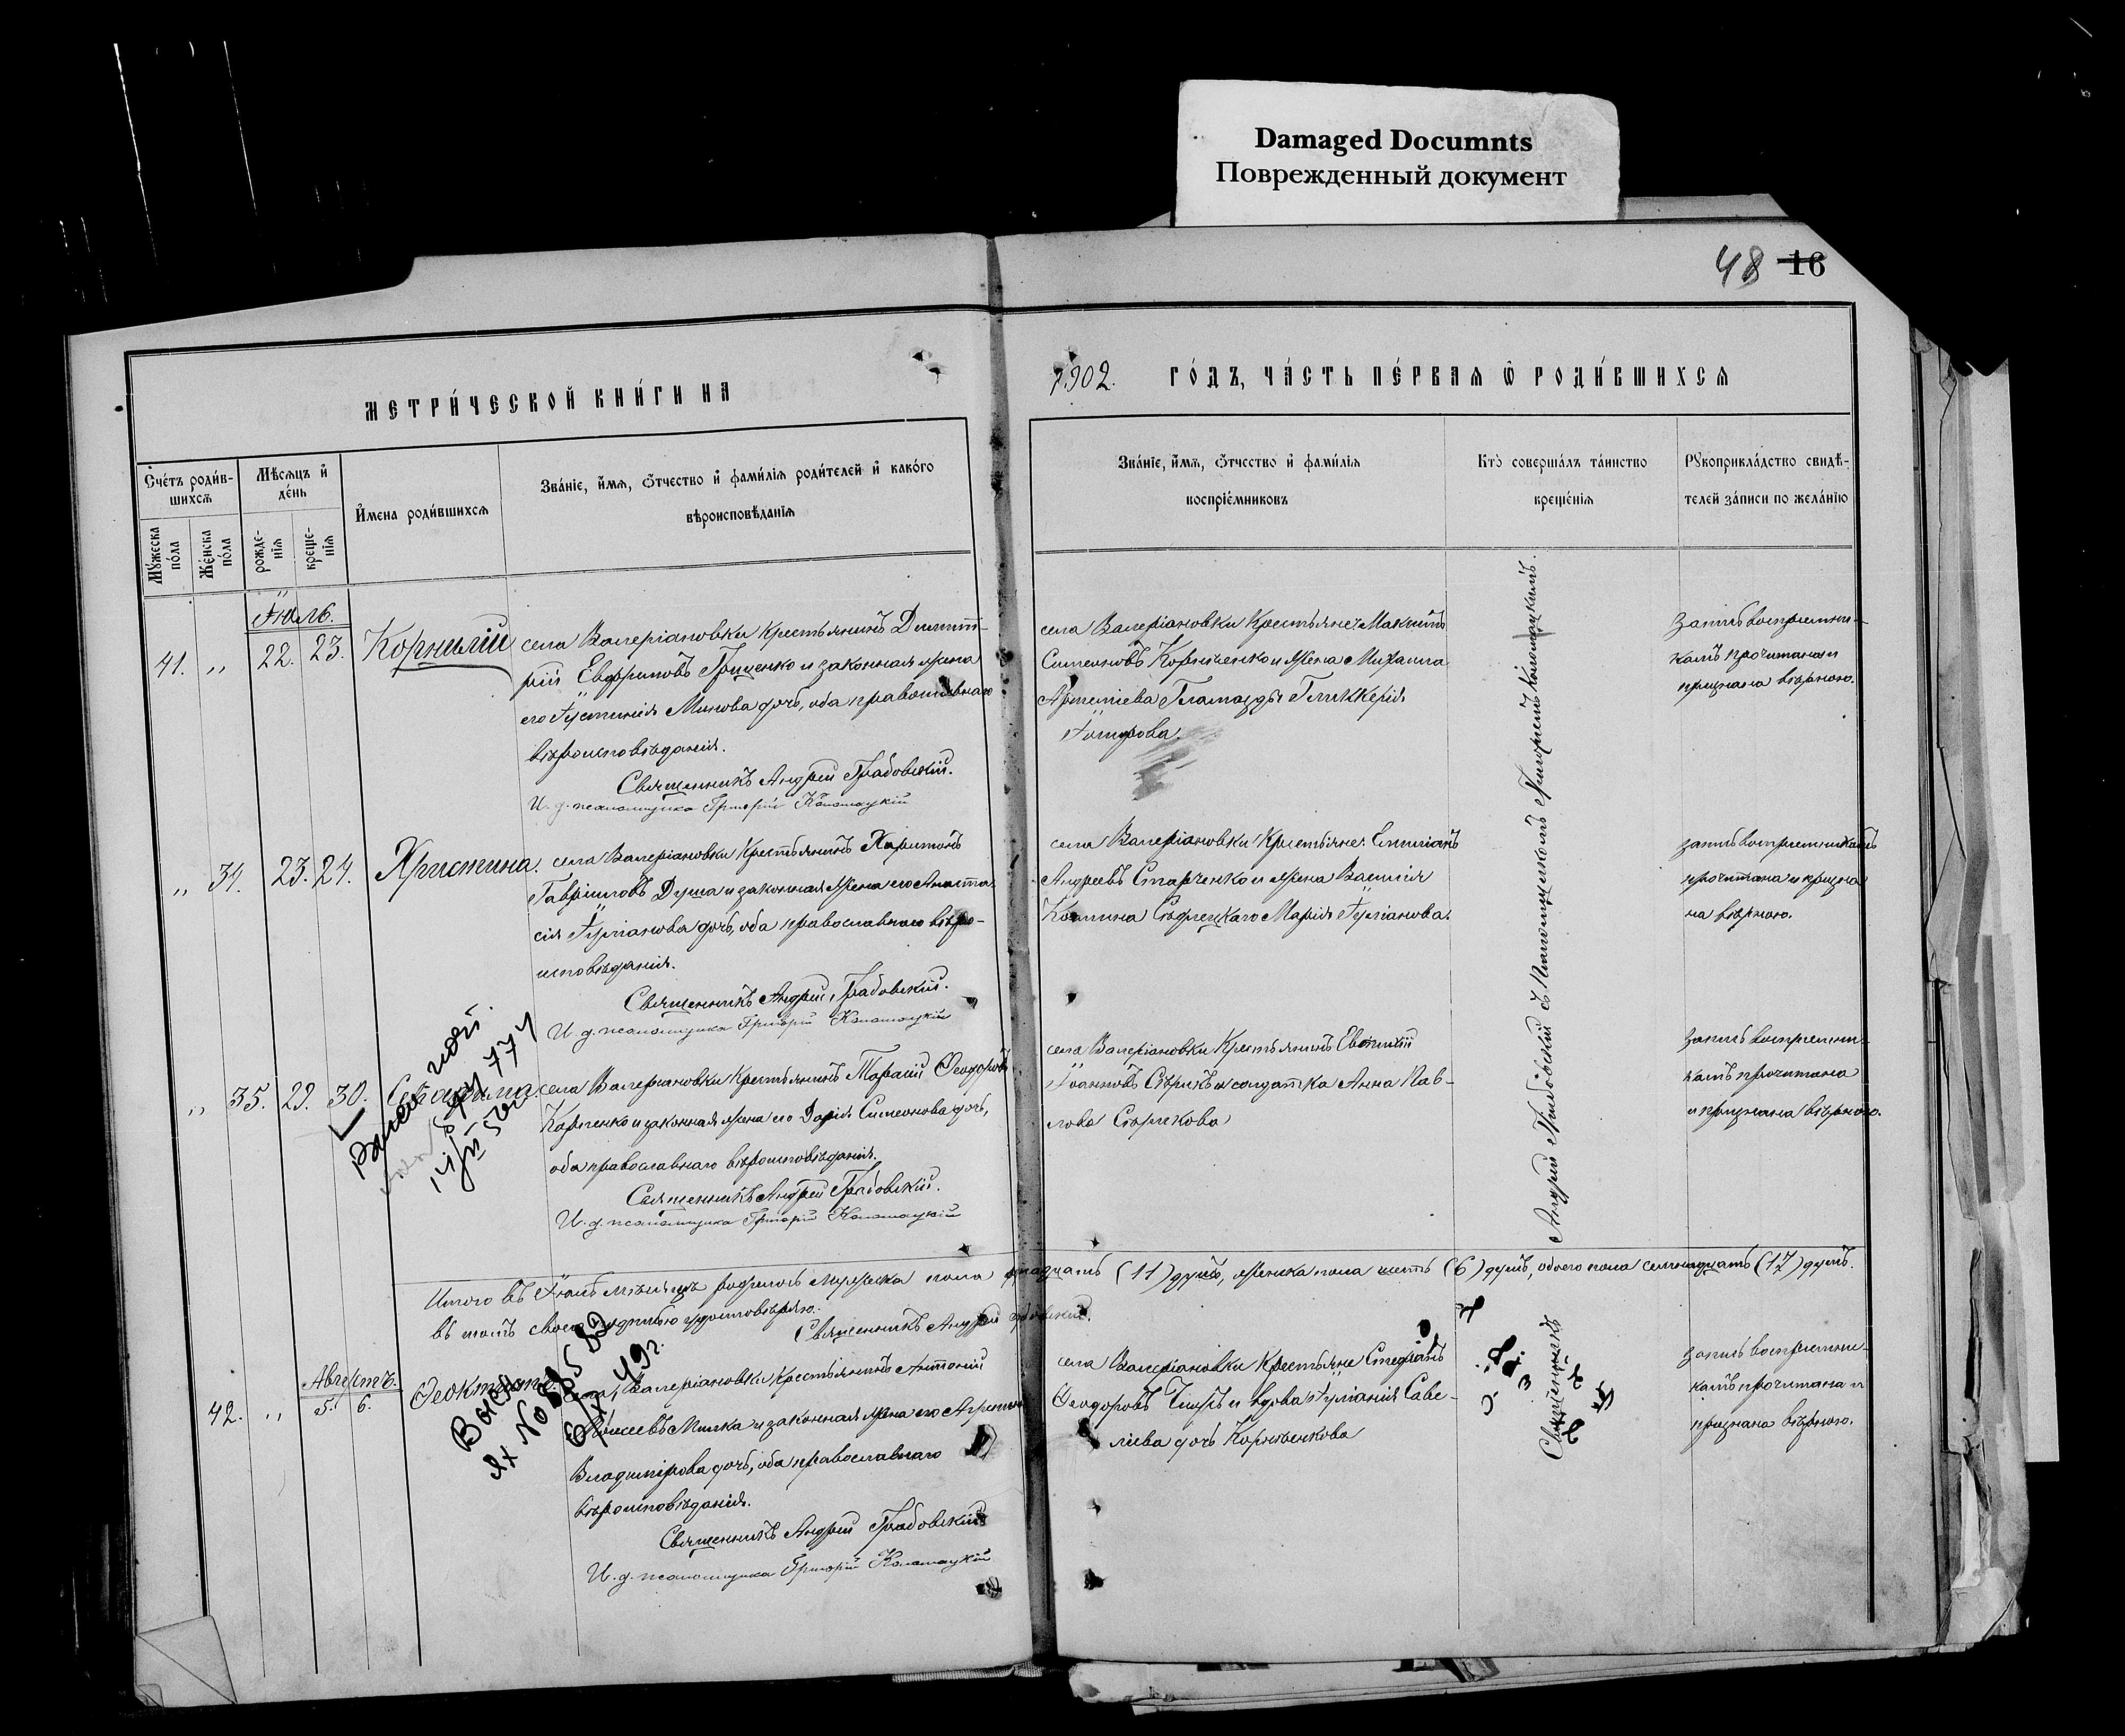 Damaged Documnts
Поврежденный документ
48 16
МЕТРИ́ЧЕСКОЙ КНИ́ГИ НА
1902. ГО́ДЪ, ЧА́СТЬ ПЕ́РВАѦ Ѿ РОДИ́ВШИХСѦ
Сче́тъ роди́в-
шихсѧ
Мꙋ́жеска по́ла
Же́нска по́ла
Мѣ́сѧцъ и҆ де́нь
рожде́-
нїѧ
креще́-
нїѧ
И҆мена роди́вшихсѧ
Зва́нїе, и҆́мѧ, ѻ҆́тчество и҆ фами́лїѧ роди́телей и҆ како́го
вѣроисповѣ́данїѧ
Зва́нїе, и҆́мѧ, ѻ҆́тчество и҆ фами́лїѧ
воспрїе́мниковъ
Кто̀ соверша́лъ та́инство
креще́нїѧ
Рꙋкоприкла́дство свидѣ́-
телей за́писи по жела́нїю
Іюль.
41. „ 22. 23. Корнилій
села Валеріановки крестьянинъ Димит-
рій Гриценко и законная жена
его Іустинія Минова дочь, оба православнаго
вѣроисповѣданія.
Священникъ Андрей Грабовскій.
И. д. псаломщика Григорій Коломацкій
села Валеріановки крестьяне: Максимъ
Симеоновъ Корниченко и жена Михаила
Артеміева Гламазды Гликкерія
запись воспреемни-
камъ прочитана и
признана вѣрною.
„ 34. 23. 24. Христина.
села Валеріановки крестьянинъ Харитонъ
Гавріиловъ Душа и законная жена его Анаста-
сія Іуліанова дочь, оба православнаго вѣро-
исповѣданія.
Священникъ Андрей Грабовскій.
И. д. псаломщика Григорій Коломацкій
села Валеріановки крестьяне: Емиліанъ
Андреевъ Старченко и жена Василія
Марія Іуліанова.
запись воспреемникамъ
прочитана и призна
на вѣрною.
„ 35. 29. 30.
села Валеріановки крестьянинъ Тарасій Ѳеодоровъ
Карпенко и законная жена его Дарія Симеонова дочь,
оба православнаго вѣроисповѣданія.
Священникъ Андрей Грабовскій.
И. д. псаломщика Григорій Коломацкій
села Валеріановки крестьянинъ Евѳимій
Іоанновъ Сѣрикъ и солдатка Анна Пав-
лова Сѣрикова
запись воспреемни-
камъ прочитана
и признана вѣрною.
Итого въ Іюлѣ мѣсяцѣ родилось мужеска пола одинадцать (11) душъ, женска пола шесть (6) душъ, обоего пола семнадцать (17) душъ.
въ томъ своею подписью удостовѣряю.
Священникъ Андрей Грабовскій.
Августъ.
42. „ 5. 6. Ѳеоктистъ.
села Валеріановки крестьянинъ Антоній
Милка и законная жена его
Владимірова дочь, оба православнаго
вѣроисповѣданія.
Священникъ Андрей Грабовскій
И. д. псаломщика Григорій Коломацкій
села Валеріановки крестьяне Стефанъ
Ѳеодоровъ и вдова Іуліанія Саве-
ліева дочь Корніенкова
запись воспреемни-
камъ прочитана и
признана вѣрною.
Священникъ Андрей Грабовскій съ Псаломщикомъ Григоріемъ Коломацкимъ.